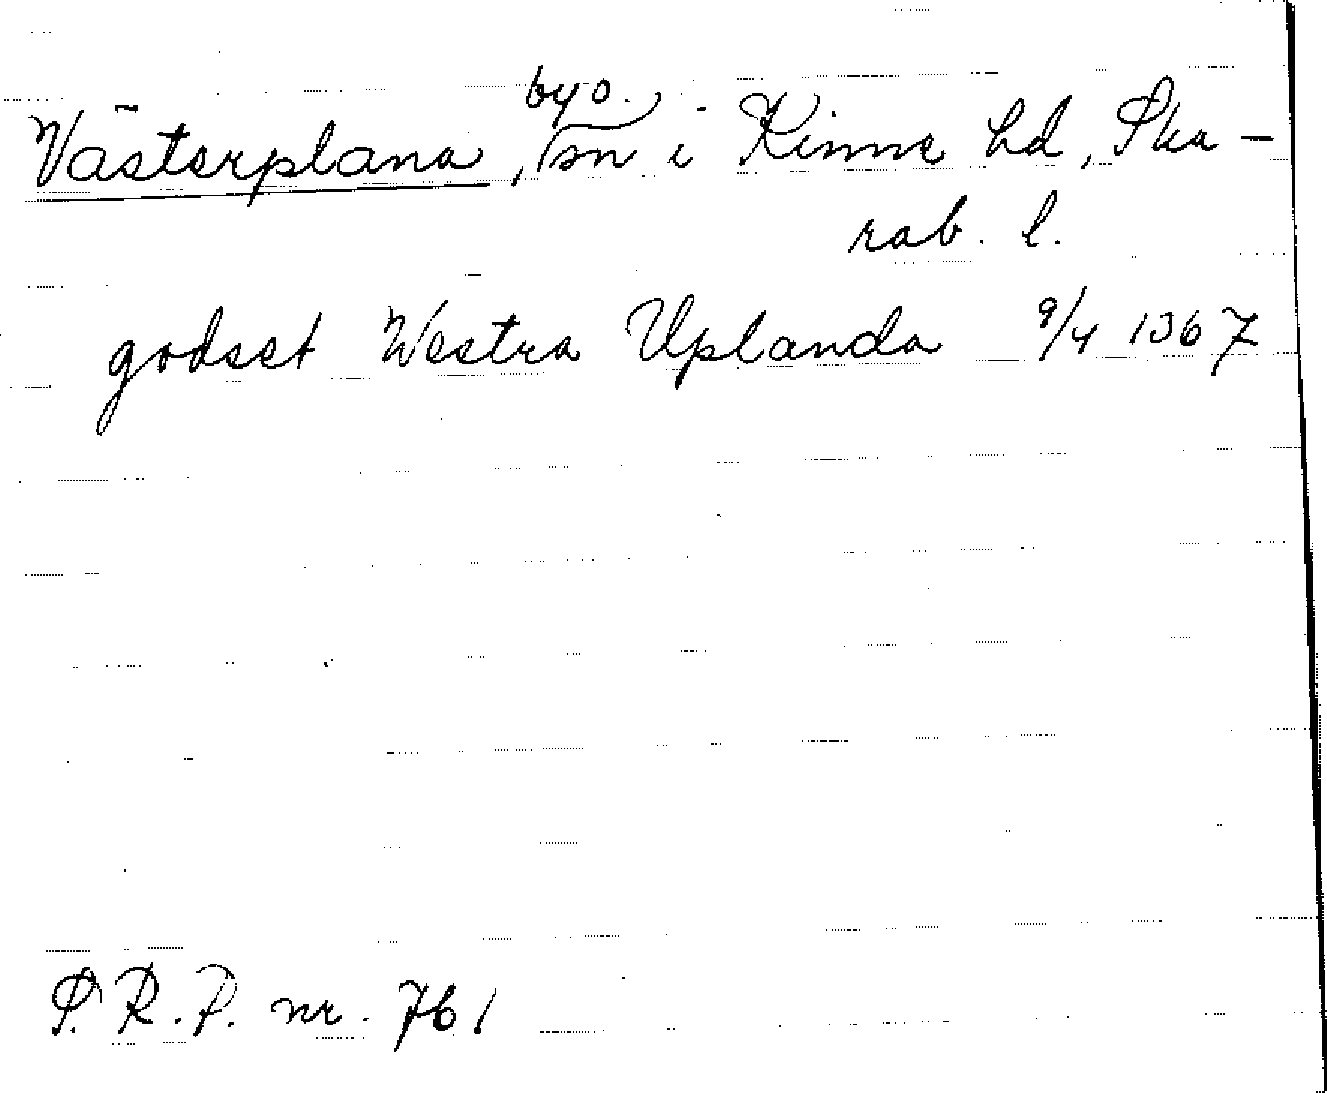 Västerplana, by o. sn i Kinne hd, Ska-
rab. l.
godset Westra Uplanda 9/4 1367
S. R. P. nr. 761